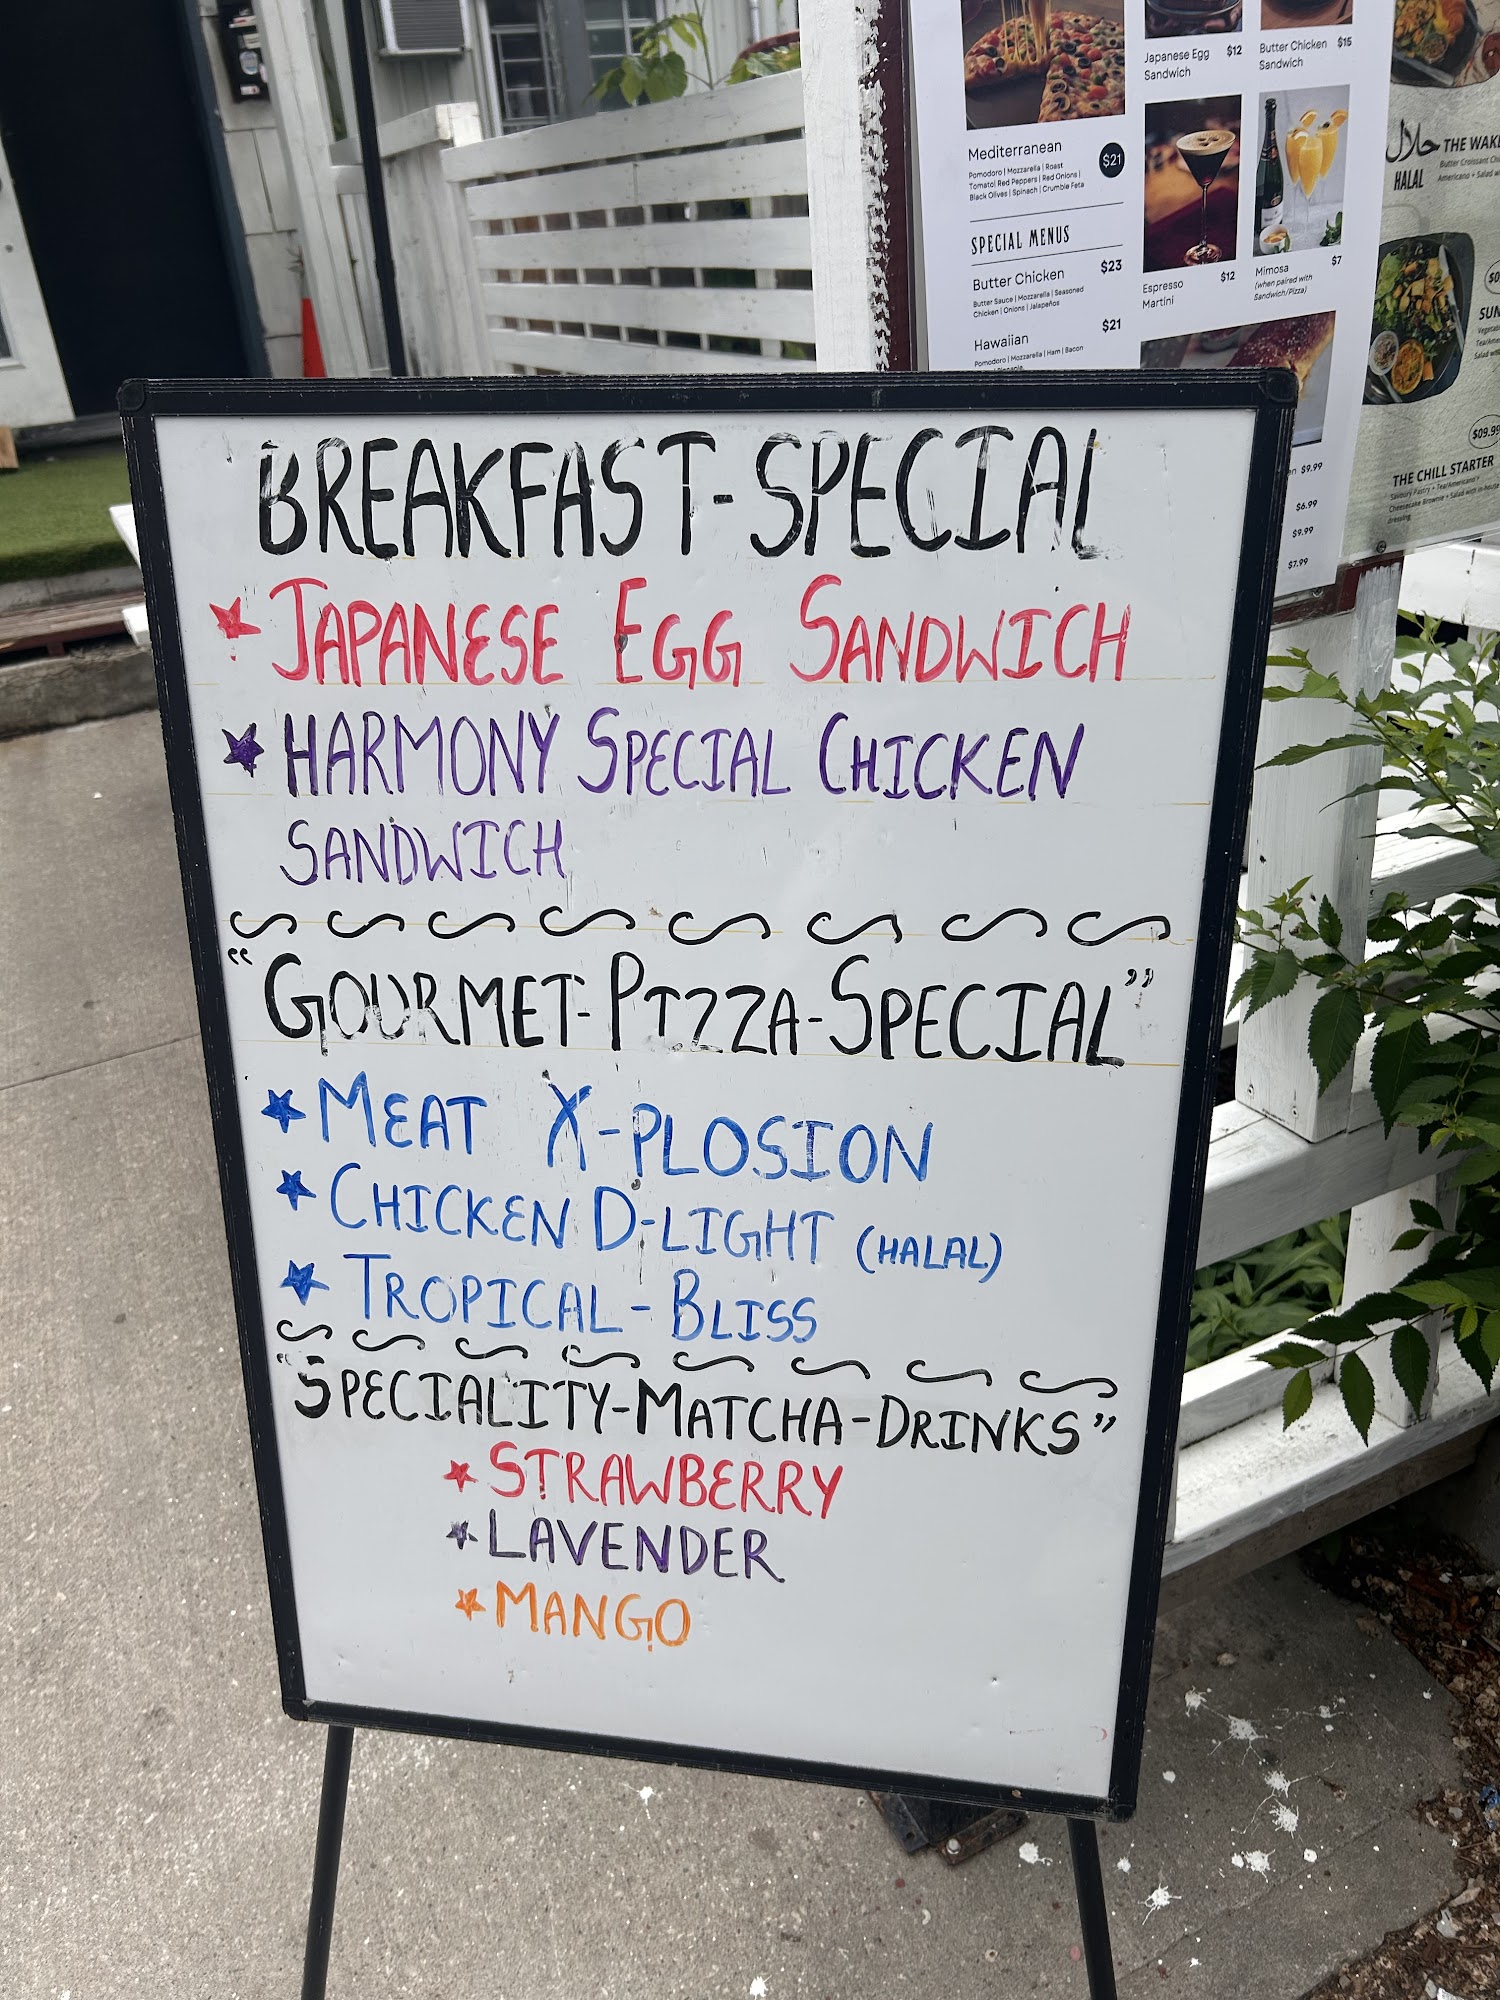 BREAKFAST-SPECIAL
JAPANESE EGG SANDWICH
HARMONY SPECIAL CHICKEN
SANDWICH
"GOURMET-PIZZA-SPECIAL"
MEAT X-PLOSION
CHICKEN D-LIGHT (HALAL)
TROPICAL-BLISS
"SPECIALITY-MATCHA-DRINKS"
STRAWBERRY
LAVENDER
MANGO
Mediterranean
$21
Pomodoro | Mozzarella | Roast
Tomato| Red Peppers | Red Onions |
Black Olives | Spinach | Crumble Feta
SPECIAL MENUS
Butter Chicken $23
Butter Sauce | Mozzarella | Seasoned
Chicken | Onions | Jalapeños
Hawaiian $21
Pomodoro | Mozzarella | Ham | Bacon
Japanese Egg $12
Sandwich
Butter Chicken $15
Sandwich
Espresso $12
Martini
Mimosa $7
(when paired with
Sandwich/Pizza)
$9.99
$6.99
$9.99
$7.99
حلال
HALAL
THE WAK
Butter Croissant
Americano + Salad
SUN
$09.99
THE CHILL STARTER
Savoury Pastry + Tea/Americano +
Cheesecake Brownie + Salad with in-house
dressing